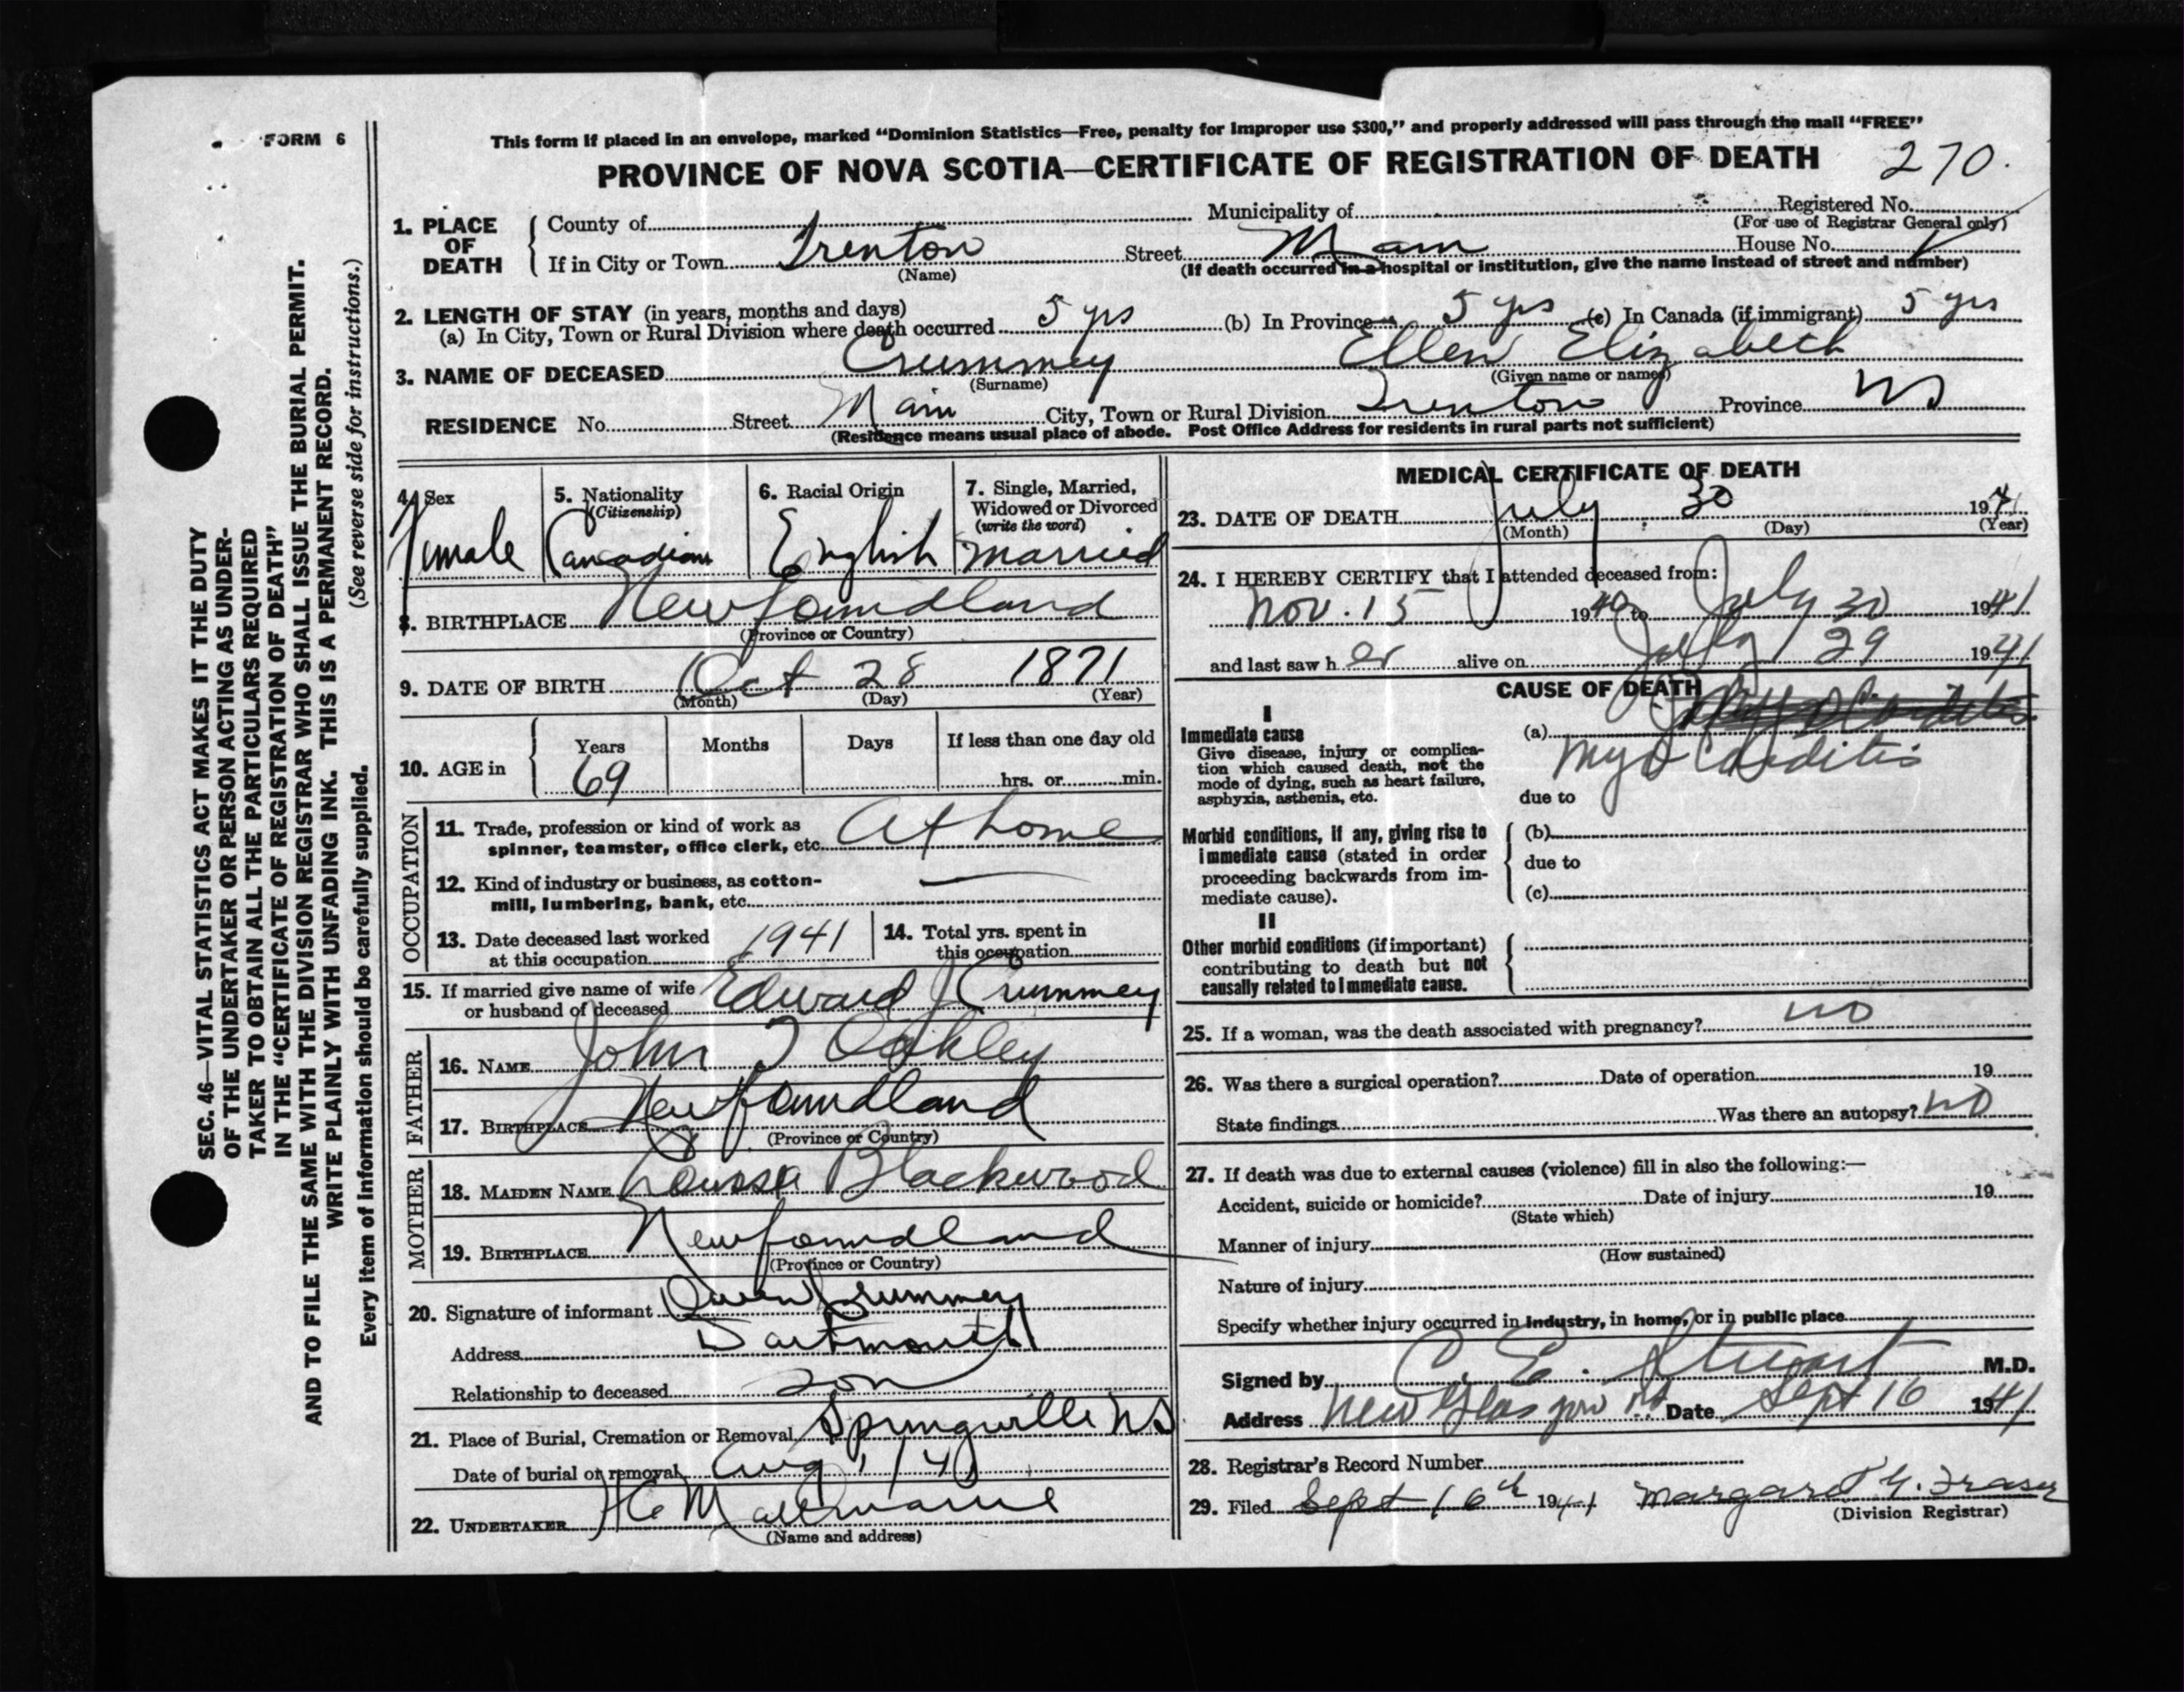 FORM 6
This form if placed in an envelope, marked "Dominion Statistics—Free, penalty for improper use $300," and properly addressed will pass through the mail "FREE"
PROVINCE OF NOVA SCOTIA—CERTIFICATE OF REGISTRATION OF DEATH 270.
1. PLACE OF DEATH
County of Municipality of Registered No.
(For use of Registrar General only)
If in City or Town Trenton Street Main House No.
(Name) (If death occurred in a hospital or institution, give the name instead of street and number)
2. LENGTH OF STAY (in years, months and days)
(a) In City, Town or Rural Division where death occurred 5 yrs (b) In Province 5 yrs (c) In Canada (if immigrant) 5 yrs
3. NAME OF DECEASED Crummey Ellen Elizabeth
(Surname) (Given name or names)
RESIDENCE No. Street Main City, Town or Rural Division Trenton Province NS
(Residence means usual place of abode. Post Office Address for residents in rural parts not sufficient)
SEC. 46—VITAL STATISTICS ACT MAKES IT THE DUTY
OF THE UNDERTAKER OR PERSON ACTING AS UNDER-
TAKER TO OBTAIN ALL THE PARTICULARS REQUIRED
IN THE "CERTIFICATE OF REGISTRATION OF DEATH"
AND TO FILE THE SAME WITH THE DIVISION REGISTRAR WHO SHALL ISSUE THE BURIAL PERMIT.
WRITE PLAINLY WITH UNFADING INK. THIS IS A PERMANENT RECORD.
Every item of information should be carefully supplied. (See reverse side for instructions.)
4. Sex Female
5. Nationality (Citizenship) Canadian
6. Racial Origin English
7. Single, Married, Widowed or Divorced (write the word) Married
8. BIRTHPLACE Newfoundland
(Province or Country)
9. DATE OF BIRTH Oct 28 1871
(Month) (Day) (Year)
10. AGE in Years 69 Months Days If less than one day old
hrs. or min.
OCCUPATION
11. Trade, profession or kind of work as
spinner, teamster, office clerk, etc. At home
12. Kind of industry or business, as cotton-
mill, lumbering, bank, etc. —
13. Date deceased last worked
at this occupation 1941
14. Total yrs. spent in
this occupation
15. If married give name of wife
or husband of deceased Edward J Crummey
FATHER
16. NAME John T Oakley
17. BIRTHPLACE Newfoundland
(Province or Country)
MOTHER
18. MAIDEN NAME Blackwood
19. BIRTHPLACE Newfoundland
(Province or Country)
20. Signature of informant Crummey
Address Dartmouth
Relationship to deceased son
21. Place of Burial, Cremation or Removal Springville NS
Date of burial or removal Aug 1/41
22. UNDERTAKER
(Name and address)
MEDICAL CERTIFICATE OF DEATH
23. DATE OF DEATH July 30 1941
(Month) (Day) (Year)
24. I HEREBY CERTIFY that I attended deceased from:
Nov. 15 1940 to July 30 1941
and last saw her alive on July 29 1941
CAUSE OF DEATH
I
Immediate cause
Give disease, injury or complica-
tion which caused death, not the
mode of dying, such as heart failure,
asphyxia, asthenia, etc.
(a) Myocarditis
due to
Morbid conditions, if any, giving rise to
immediate cause (stated in order
proceeding backwards from im-
mediate cause).
(b)
due to
(c)
II
Other morbid conditions (if important)
contributing to death but not
causally related to immediate cause.
25. If a woman, was the death associated with pregnancy? no
26. Was there a surgical operation? Date of operation 19
State findings Was there an autopsy? no
27. If death was due to external causes (violence) fill in also the following:—
Accident, suicide or homicide? Date of injury 19
(State which)
Manner of injury
(How sustained)
Nature of injury
Specify whether injury occurred in industry, in home, or in public place
Signed by C. E. Stuart M.D.
Address New Glasgow NS Date Sept 16 1941
28. Registrar's Record Number
29. Filed Sept 16th 1941 Margaret G. Fraser
(Division Registrar)